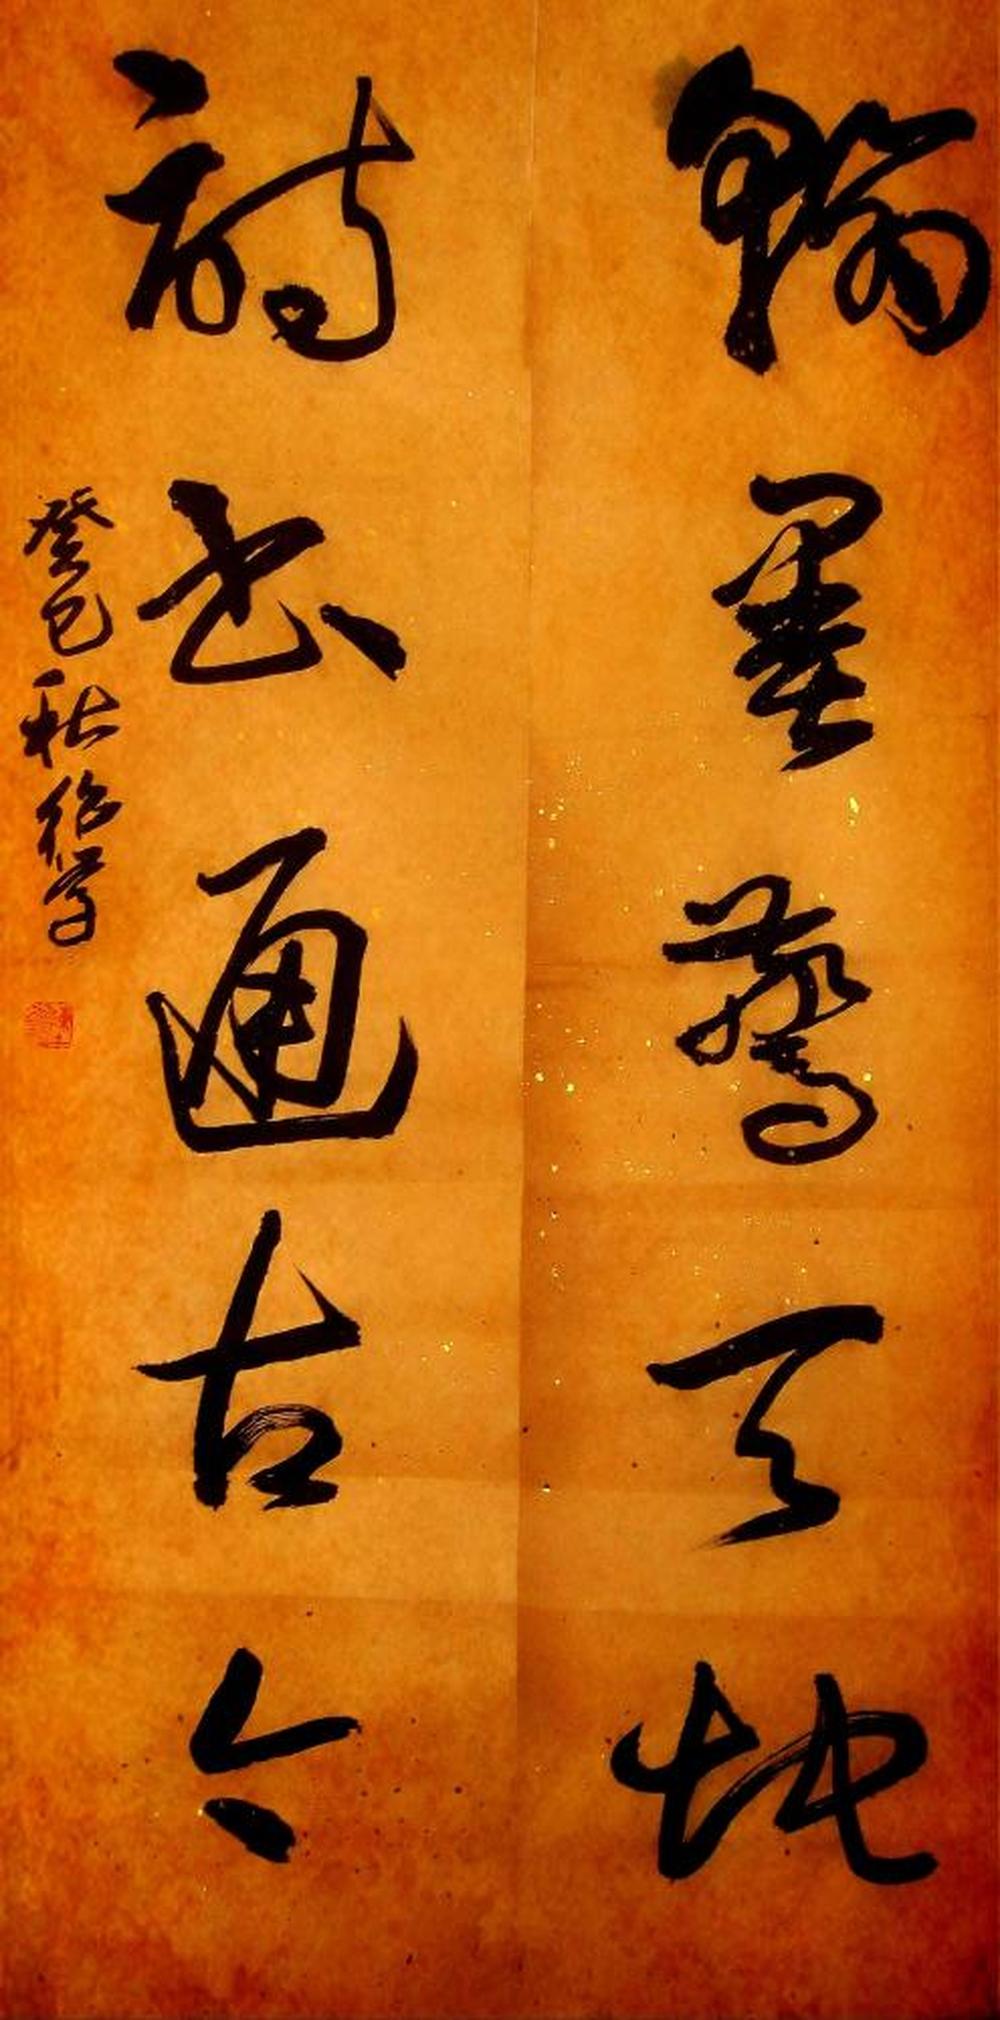 翰墨驚天地
詩书通古今
癸巳秋